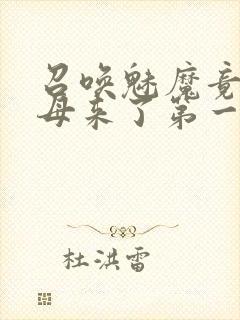 召唤魅魔竟
母来了第一
杜洪雷